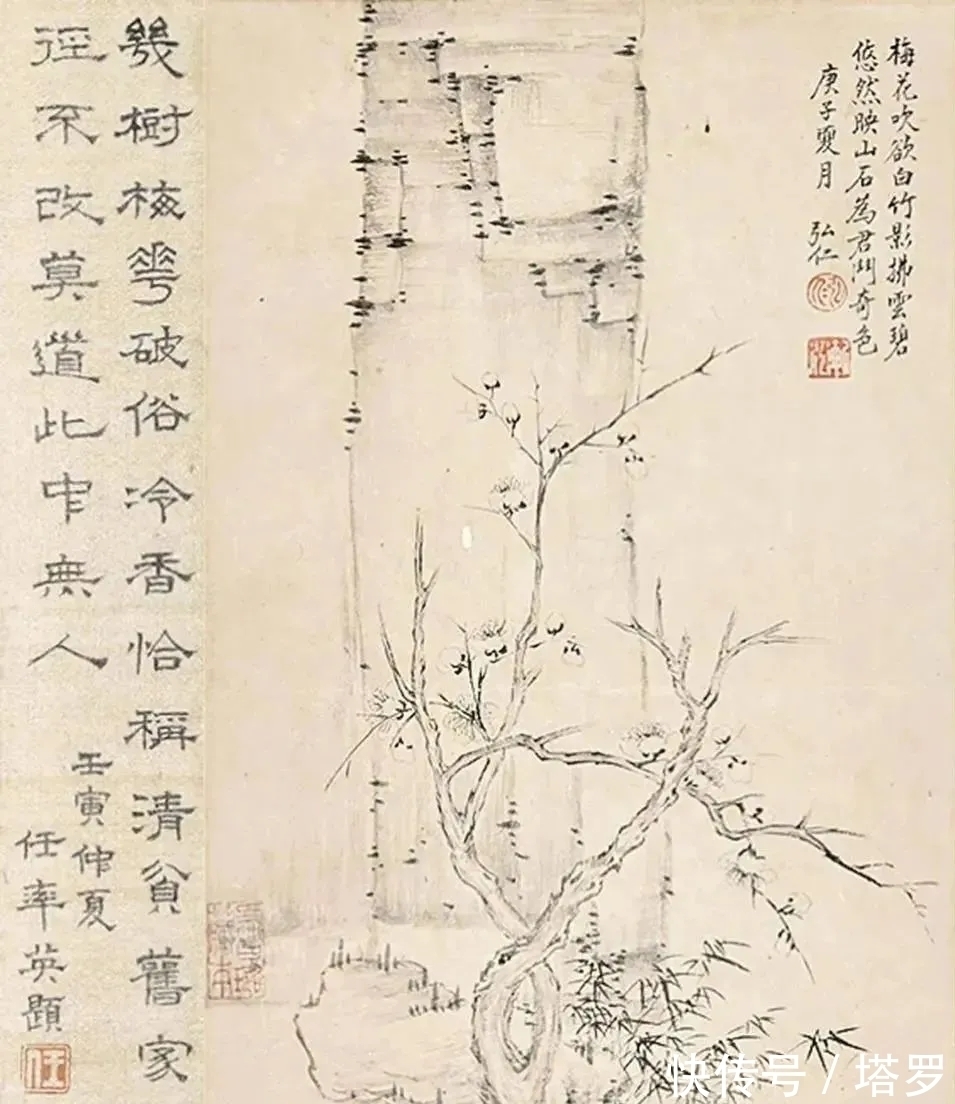 梅花吹欲白竹影拂雲碧
悠然映山石為君鬥奇色
庚子夏月 弘仁
幾樹梅花破俗冷香恰稱清貧舊家
徑不改莫道此中無人
壬寅仲夏
任率英題
快传号 / 塔罗